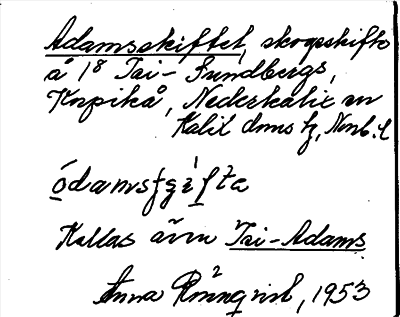 Adamsskiftet, skogsskifte
å 1⁸ Tai-Sundbergs,
Korpikå, Nederkalix sn
Kalix dmns tg, Nonb. l
ódamsʃʒìfta
Kallas även Tai-Adams
Anna Rönnqvist, 1953